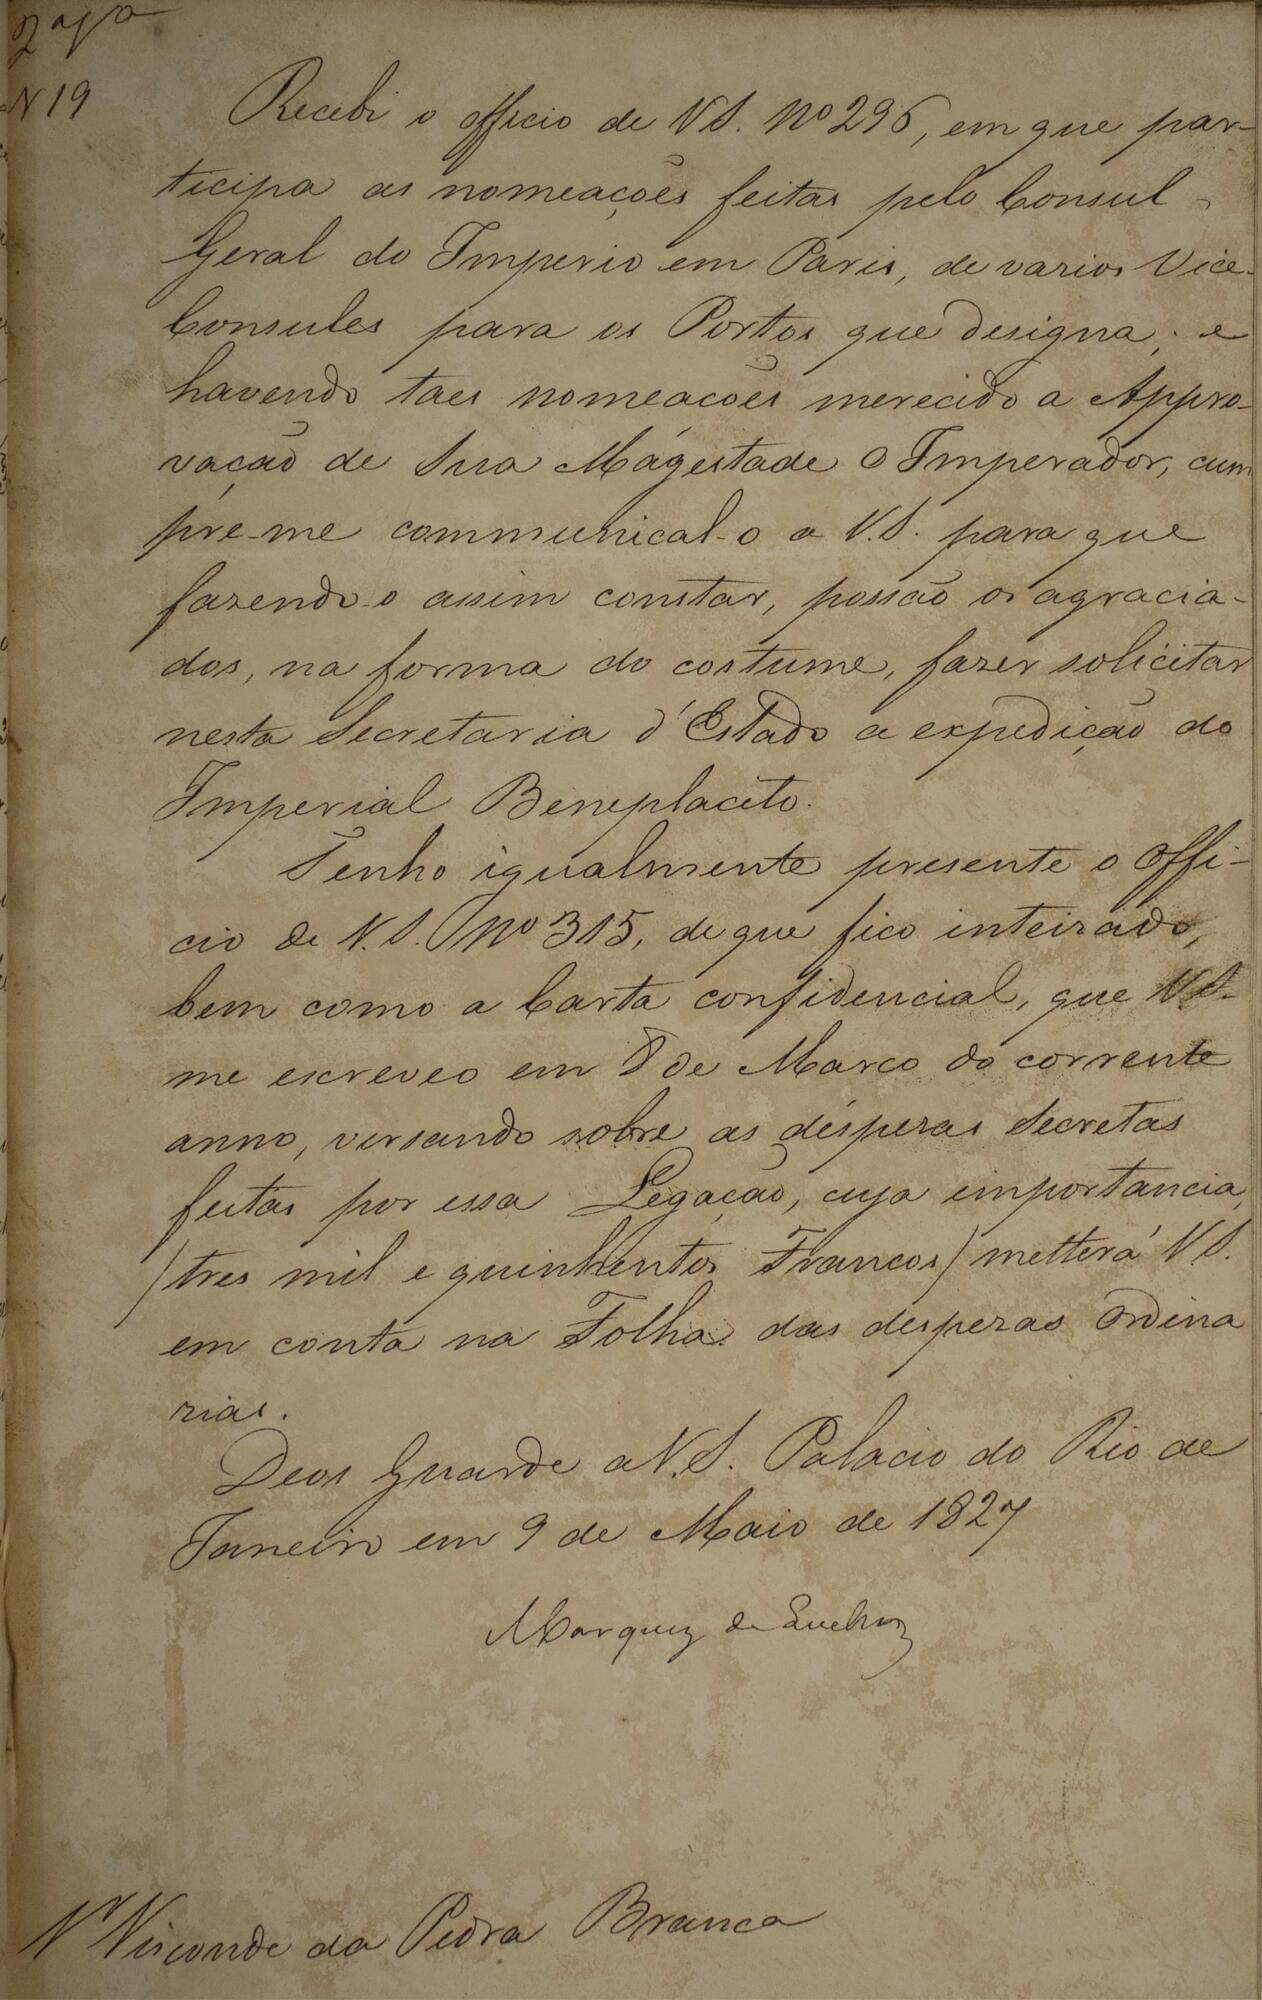 N 19
Recebi o officio de V S. Nº 296, em que par-
ticipa as nomeações feitas pelo Consul -
Geral do Imperio em Paris, de varios Vice-
Consules para os Portos que designa; e
havendo taes nomeacões merecido a Appro-
vação de Sua Mágestade O Imperador, cum
pre-me communical-o a V.S. para que
fazendo-o assim constar, possão os agracia-
dos, na forma do costume, fazer solicitar
nesta Secretaria d'Estado a expedição do
Imperial Beneplacito.
Tenho igualmente presente o Offi-
cio de V.S. Nº 315, de que fico inteirado,
bem como a Carta confidencial, que V.S.
me escreveo em 8 de Marco do corrente
anno, versando sobre as déspezas Secretas
feitas por essa Legação, cuja importancia,
/tres mil e quinhentos Francos/ metterá V S.
em conta na Folha das despezas Ordina
rias.
Deos Guarde a V.S. Palacio do Rio de
Janeiro em 9 de Maio de 1827
Marquez de Queluz
Visconde da Pedra Branca